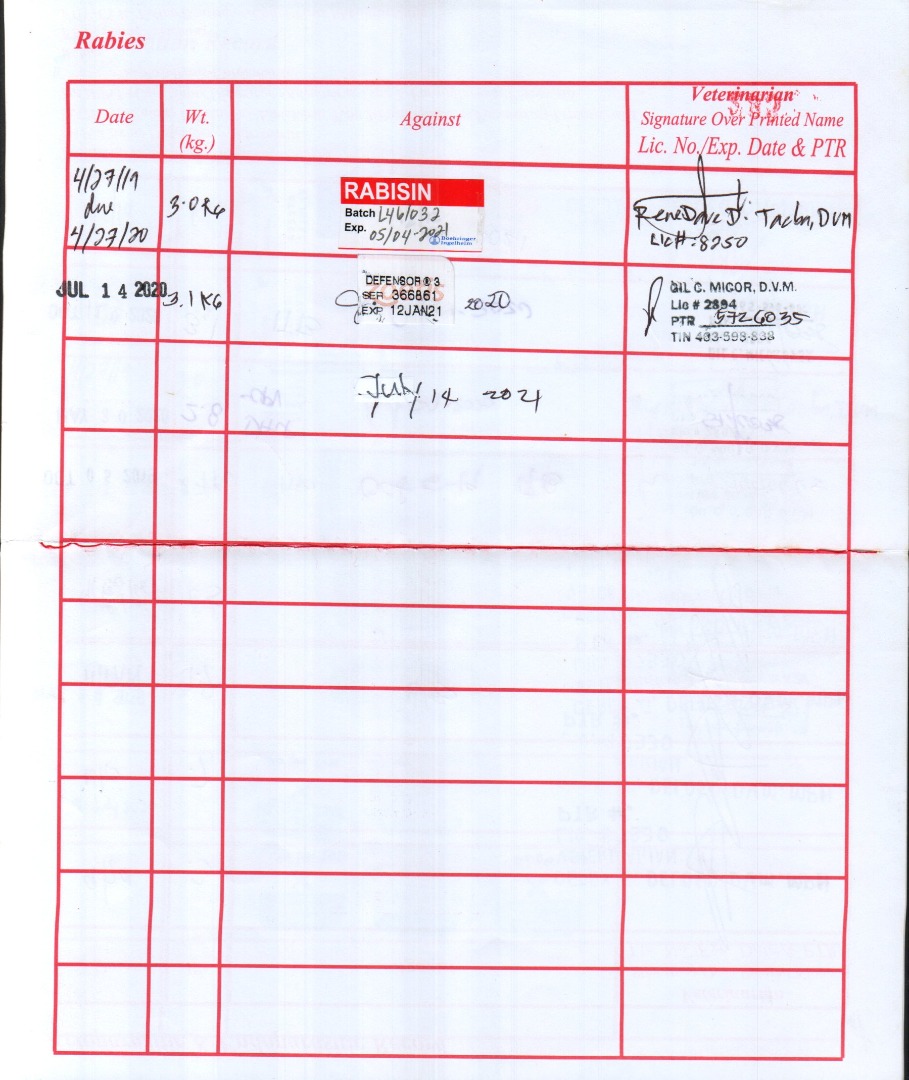 Rabies
Date
Wt.
(kg.)
Against
Veterinarian
Signature Over Printed Name
Lic. No./Exp. Date & PTR
4/27/19
due
4/27/20
3.0 KG
RABISIN
Batch L461032
Exp. 05/04-2021
Boehringer
Ingelheim
Rene Dave D. , DVM
Lic#: 8250
JUL 14 2020
3.1 KG
DEFENSOR ® 3
SER 366861
EXP 12JAN21
2020
GIL C. MIGOR, D.V.M.
Lic # 2894
PTR 5726035
TIN 403-593-838
July 14 2021